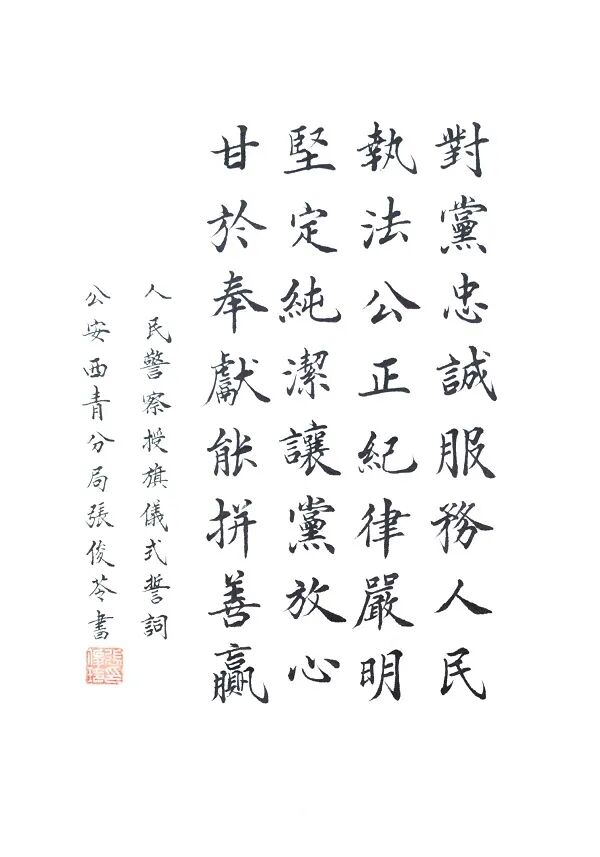 對黨忠誠服務人民
執法公正紀律嚴明
堅定純潔讓黨放心
甘於奉獻能拼善贏
人民警察授旗儀式誓詞
公安西青分局張俊苓書